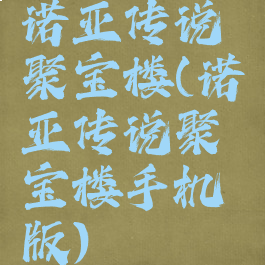 诺亚传说
聚宝楼(诺
亚传说聚
宝楼手机
版)